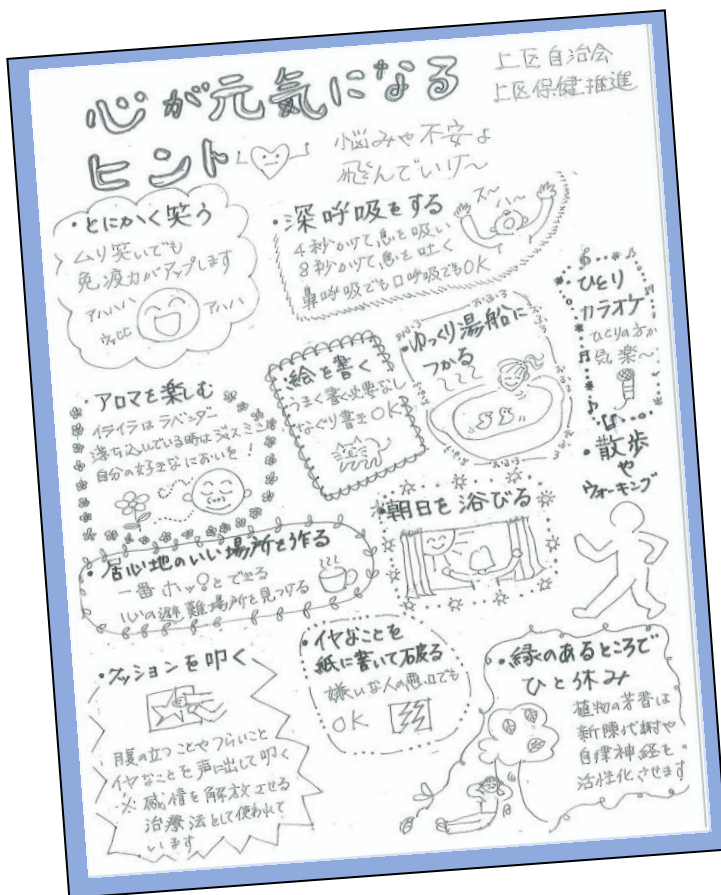 心が元気になる
ヒント
上区自治会
上区保健推進
悩みや不安よ
飛んでいけ〜
・とにかく笑う
ムリ笑いでも
免疫力がアップします
アハハハ
アハハ
ウッシシ
・深呼吸をする
4秒かけて息を吸い
8秒かけて息を吐く
鼻呼吸でも口呼吸でもOK
ス〜
ハ〜
ひとり
カラオケ
ひとりの方が
気楽〜
・ゆっくり湯船に
つかる
・絵を書く
うまく書く必要なし
なぐり書きOK
・アロマを楽しむ
イライラはラベンダー
落ち込んでいる時はジャスミン
自分の好きなにおいを!
・散歩
や
ウォーキング
・朝日を浴びる
・居心地のいい場所を作る
一番ホッとできる
心の避難場所を見つける
・クッションを叩く
腹の立つことやつらいこと
イヤなことを声に出して叩く
※感情を解放させる
治療法として使われて
います
・イヤなことを
紙に書いて破る
嫌いな人の悪口でも
OK
・緑のあるところで
ひと休み
植物の芳香は
新陳代謝や
自律神経を
活性化させます